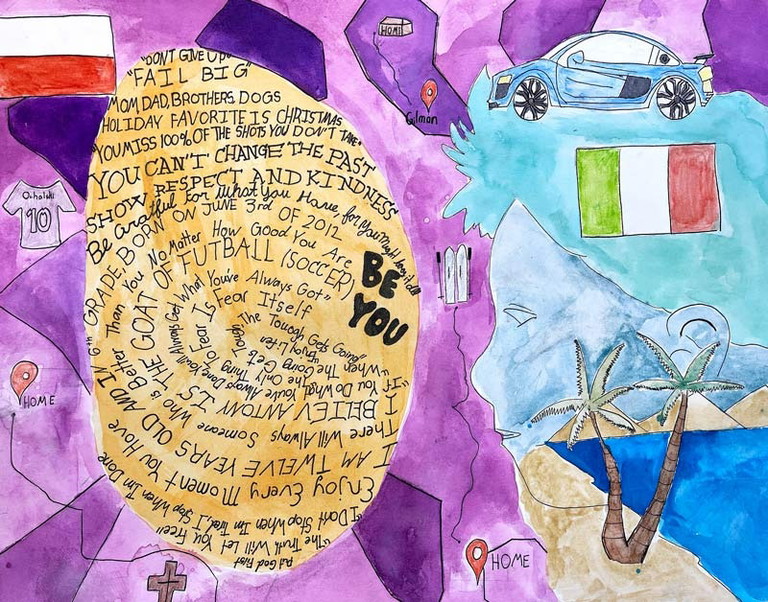 "DON'T GIVE UP"
"FAIL BIG"
MOM, DAD, BROTHERS, DOGS
HOLIDAY FAVORITE IS CHRISTMAS
"YOU MISS 100% OF THE SHOTS YOU DON'T TAKE"
YOU CAN'T CHANGE THE PAST
SHOW RESPECT AND KINDNESS
Be Grateful For What You Have, for You Might
6th GRADE, BORN ON JUNE 3rd OF 2012
There Will Always Someone Who is Better Than You No Matter How Good You Are
I BELIEV ANTONY IS THE GOAT OF FUTBALL (SOCCER)
"If You Do What You've Always Done, You'll Always Get What You've Always Got"
The Only Thing To Fear Is Fear Itself
"When The Going Gets Tough The Tough Get Going"
Enjoy Life
I AM TWELVE YEARS OLD AND IN
Enjoy Every Moment You Have
"I Don't Stop When I'm Tired, I Stop When I'm Done
"The Truth Will Let You Free"
Put God First
BE
YOU
HOME
Gilman
10
HOME
HOME